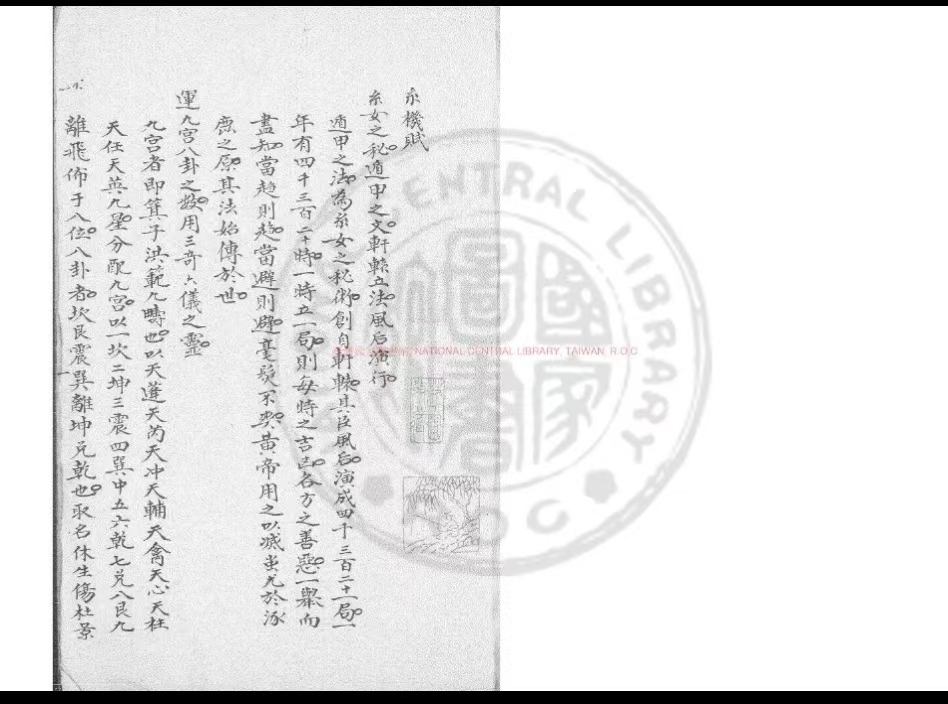 玄機賦
玄女之秘遁甲之文軒轅立法風后演行
遁甲之法為玄女之秘術創自軒轅其臣風后演成四千三百二十局一
年有四千三百二十時一時立一局則每時之吉凶各方之善惡一舉而
盡知當趋則趋當避則避毫髮不爽黄帝用之以滅蚩尤於涿
鹿之原其法始傳於世
運九宫八卦之数用三竒六儀之靈
九宫者即箕子洪範九疇也以天蓬天芮天冲天輔天禽天心天柱
天任天英九星分配九宫以一坎二坤三震四巽中五六乾七兑八艮九
離飛佈于八位八卦者坎艮震巽離坤兑乾也取名休生傷杜景
NATIONAL CENTRAL LIBRARY, TAIWAN, R.O.C
CENTRAL LIBRARY
R O C
國家圖